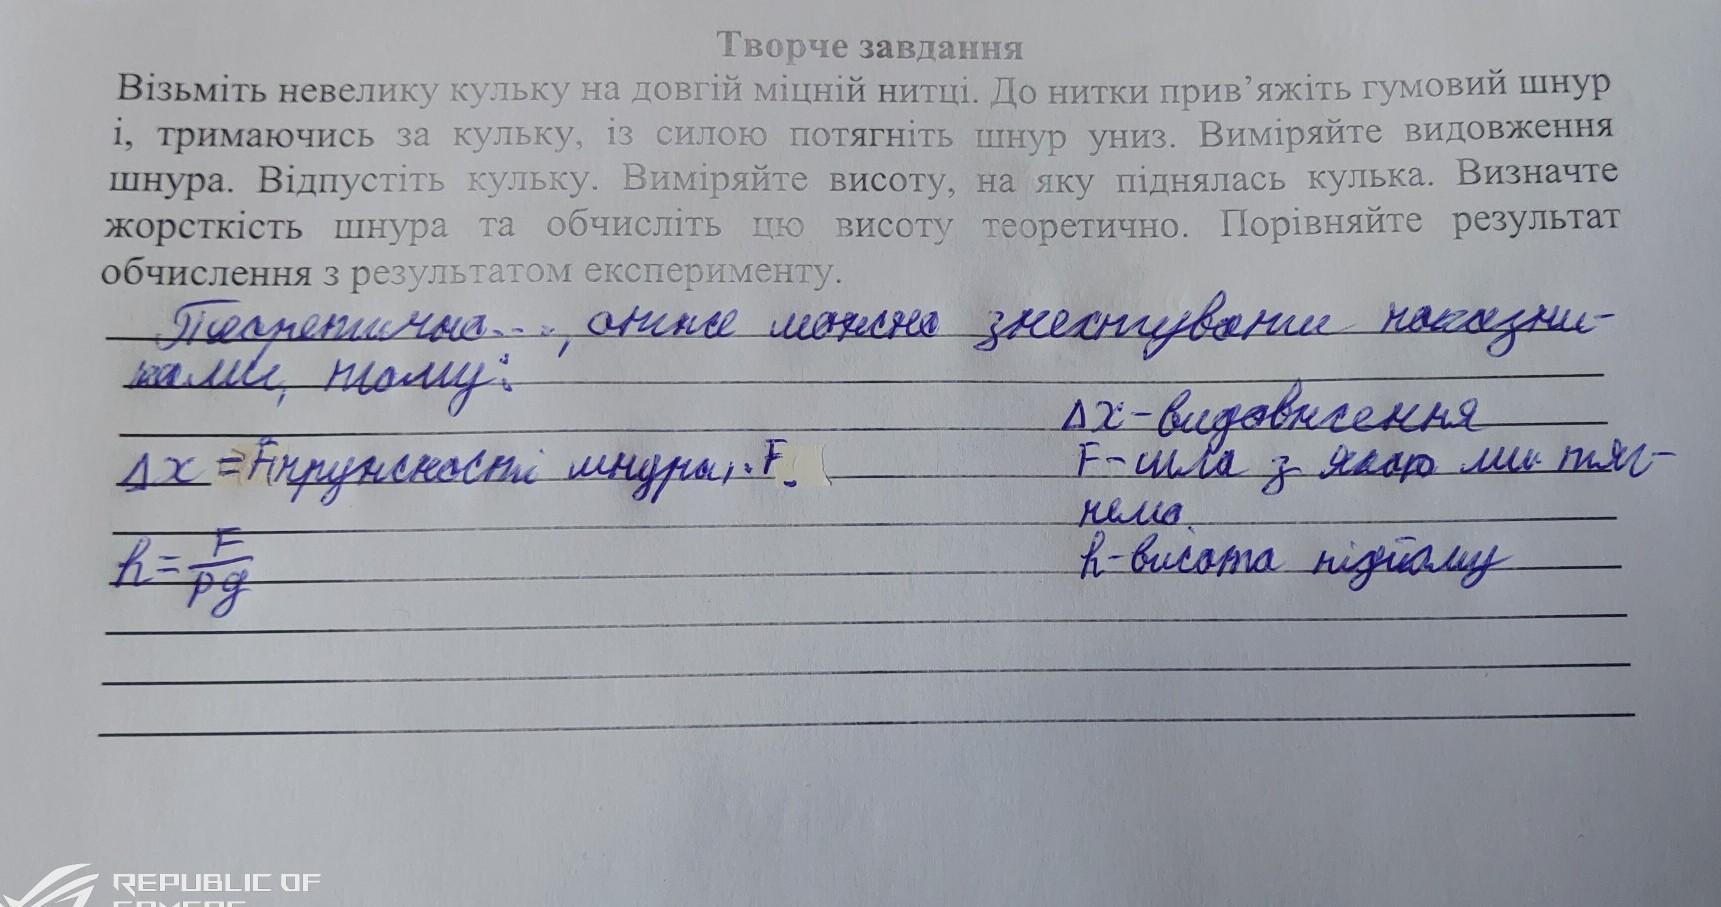 Творче завдання
Візьміть невелику кульку на довгій міцній нитці. До нитки прив’яжіть гумовий шнур
і, тримаючись за кульку, із силою потягніть шнур униз. Виміряйте видовження
шнура. Відпустіть кульку. Виміряйте висоту, на яку піднялась кулька. Визначте
жорсткість шнура та обчисліть цю висоту теоретично. Порівняйте результат
обчислення з результатом експерименту.
Теоретична..., отже можна знехтувати показни-
ками, тому:
Δx - видовження
Δx = Fпружності шнура, : F
F - сила з якою ми тяг-
немо
h = F/pg
h - висота підйому
REPUBLIC OF
GAMERS